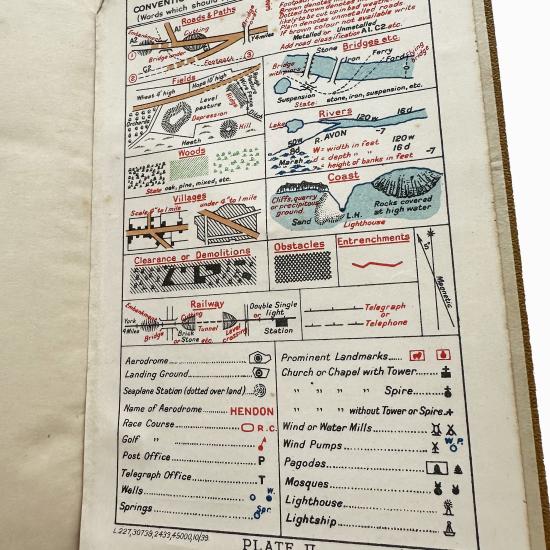 CONVENTI
(Words which should
Roads & Paths
Embankment
A2
A1
Cutting
Y 4 miles
Bridge under
Footpath
G.R.
①
②
③
Footpa
Brown denotes m
Dotted brown denotes
likely to be cut up in bad weather
Plain denotes unmetalled roads
If brown colour not available write
Metalled or Unmetalled
Add road classification A1. C2 etc.
Bridges etc
Stone
Iron
Ferry
Ford
Bridge with piers
Suspension
State: stone, iron, suspension, etc.
Fields
Wheat 4' high
Hops 10' high
Level pasture
Orchards
Depression
Hill
Heath
Rivers
120w 16d
Lake
R. AVON
-7
50w
8d
Marsh
W = width in feet 120w
d = depth " " 16d
-7 = height of banks in feet -7
Woods
State oak, pine, mixed, etc.
Coast
Cliffs, quarry or precipitous ground.
Sand
L.H.
Lighthouse
Rocks covered at high water
Villages
Scale 6" to 1 mile
under 6" to 1 mile
Clearance or Demolitions
Obstacles
Entrenchments
Magnetic
Railway
Embankment
Cutting
Double Single or light
York 4 Miles
Bridge
Brick or Stone etc.
Tunnel
Level crossing
Station
Telegraph or Telephone
Aerodrome
Landing Ground
Seaplane Station (dotted over land)
Name of Aerodrome HENDON
Race Course R.C.
Golf "
Post Office P
Telegraph Office T
Wells W.
Springs Spr.
Prominent Landmarks
Church or Chapel with Tower
" " " " Spire
" " " without Tower or Spire
Wind or Water Mills
Wind Pumps W.P.
Pagodas
Mosques
Lighthouse
Lightship
L.227,30738,2433,45000,10/39.
PLATE II